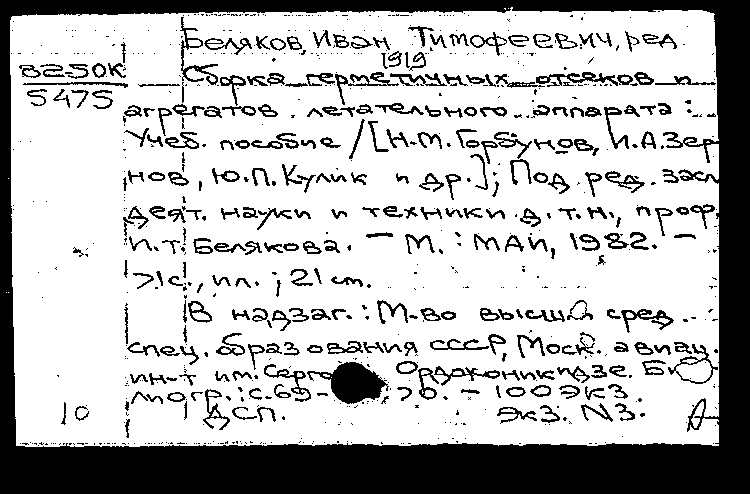 Беляков, Иван Тимофеевич, ред
1919
В2-50К
5475
Сборка герметичных отсеков и
агрегатов летательного аппарата:
Учеб. пособие /[Н.М. Горбунов, И.А.Зер-
нов, Ю.П.Кулик и др.]; Под ред. засл
деят. науки и техники д.т.н., проф.
И.Т. Белякова. — М. : МАИ, 1982. —
71с., ил. ; 21 cm.
В надзаг.: М-во высш и сред.
спец. образования СССР, Моск. авиац.
ин-т им. Серго Орджоникидзе. Биб
лиогр.: с.69-70. — 100 экз.
10
ДСП.
Экз. №3.
А